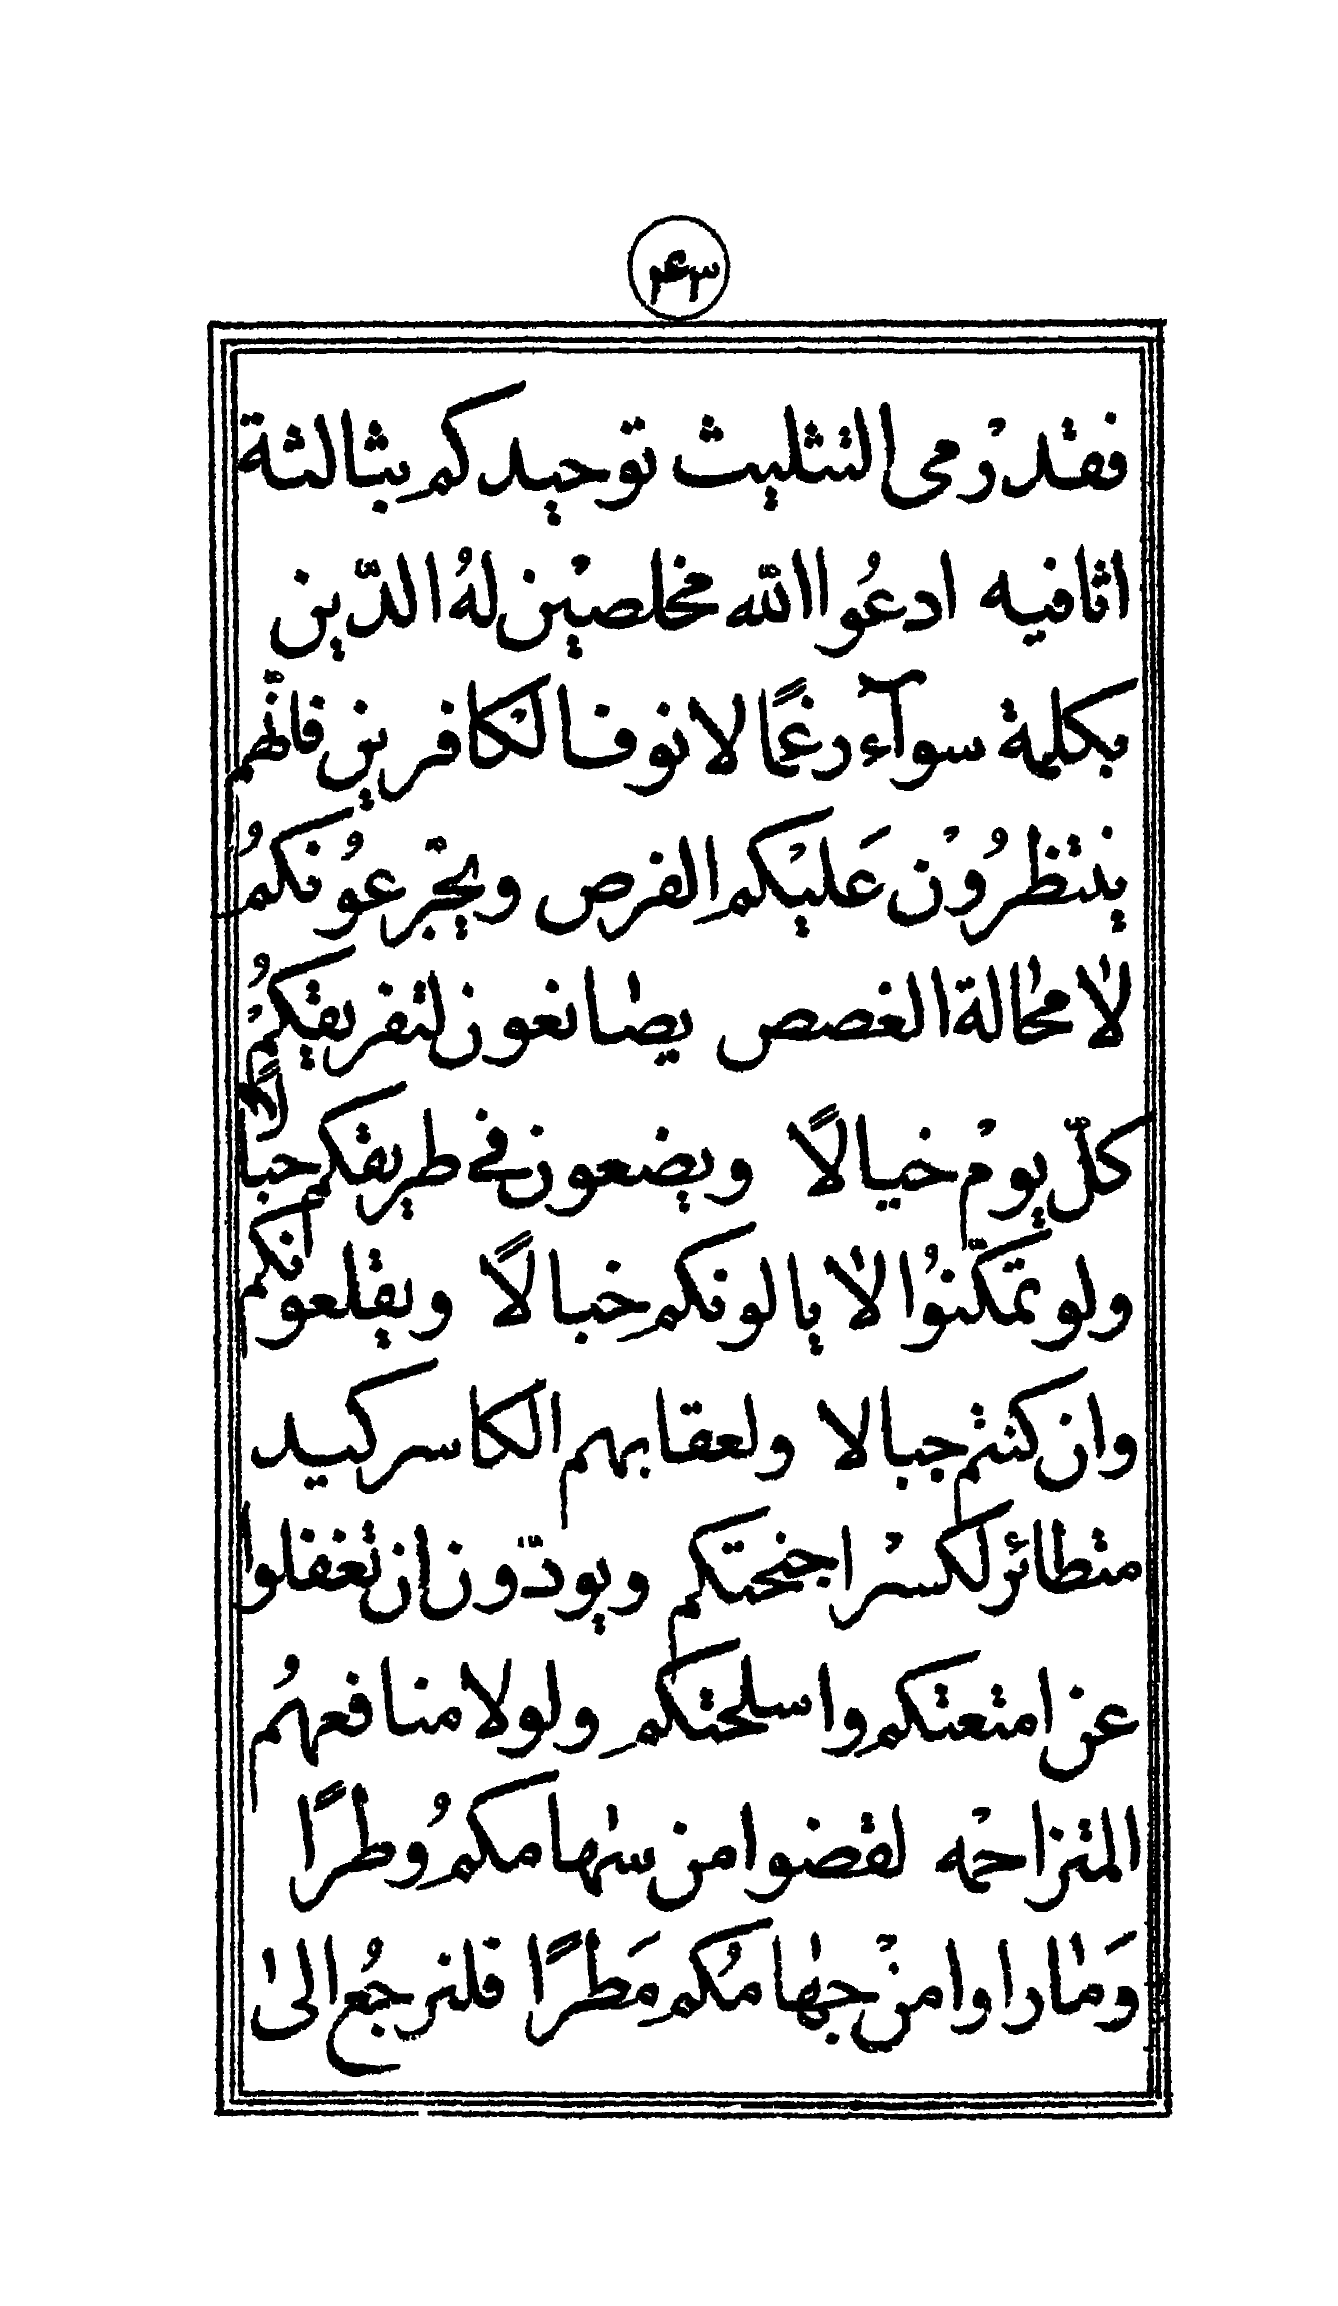 ۴۳
فقد رْمى التثليث توحيدكم بثالثة
اثافيه ادعُوا الله مخلصيْن لهُ الدّين
بكلمة سوآء رغمًا لانوف الْكافرين فانّهم
ينتظرُوْن عَليْكم الفرص ويجْرعوُنكمُ
لاٰ محٰالة الغصص يصٰانعون لتفريقكمُ
كلّ يومْ خيالًا ويضعون فى طريقكم حبالًا
ولو تمكّنوُا لاٰ يالونكم خبالًا ويقلعونكم
وان كنتم جبالا ولعقابهم الكاسر كيد
متطائر لكسْر اجنحتكم ويودّون ان تغفلوا
عن امتعتكم واسلحتكم ولولا منافعهمُ
المتزاحمْه لقضوا من سهٰامكمُ وطرًا
وَمٰا راوا منْ جهٰامكُم مَطرًا فلنرجُع الىٰ